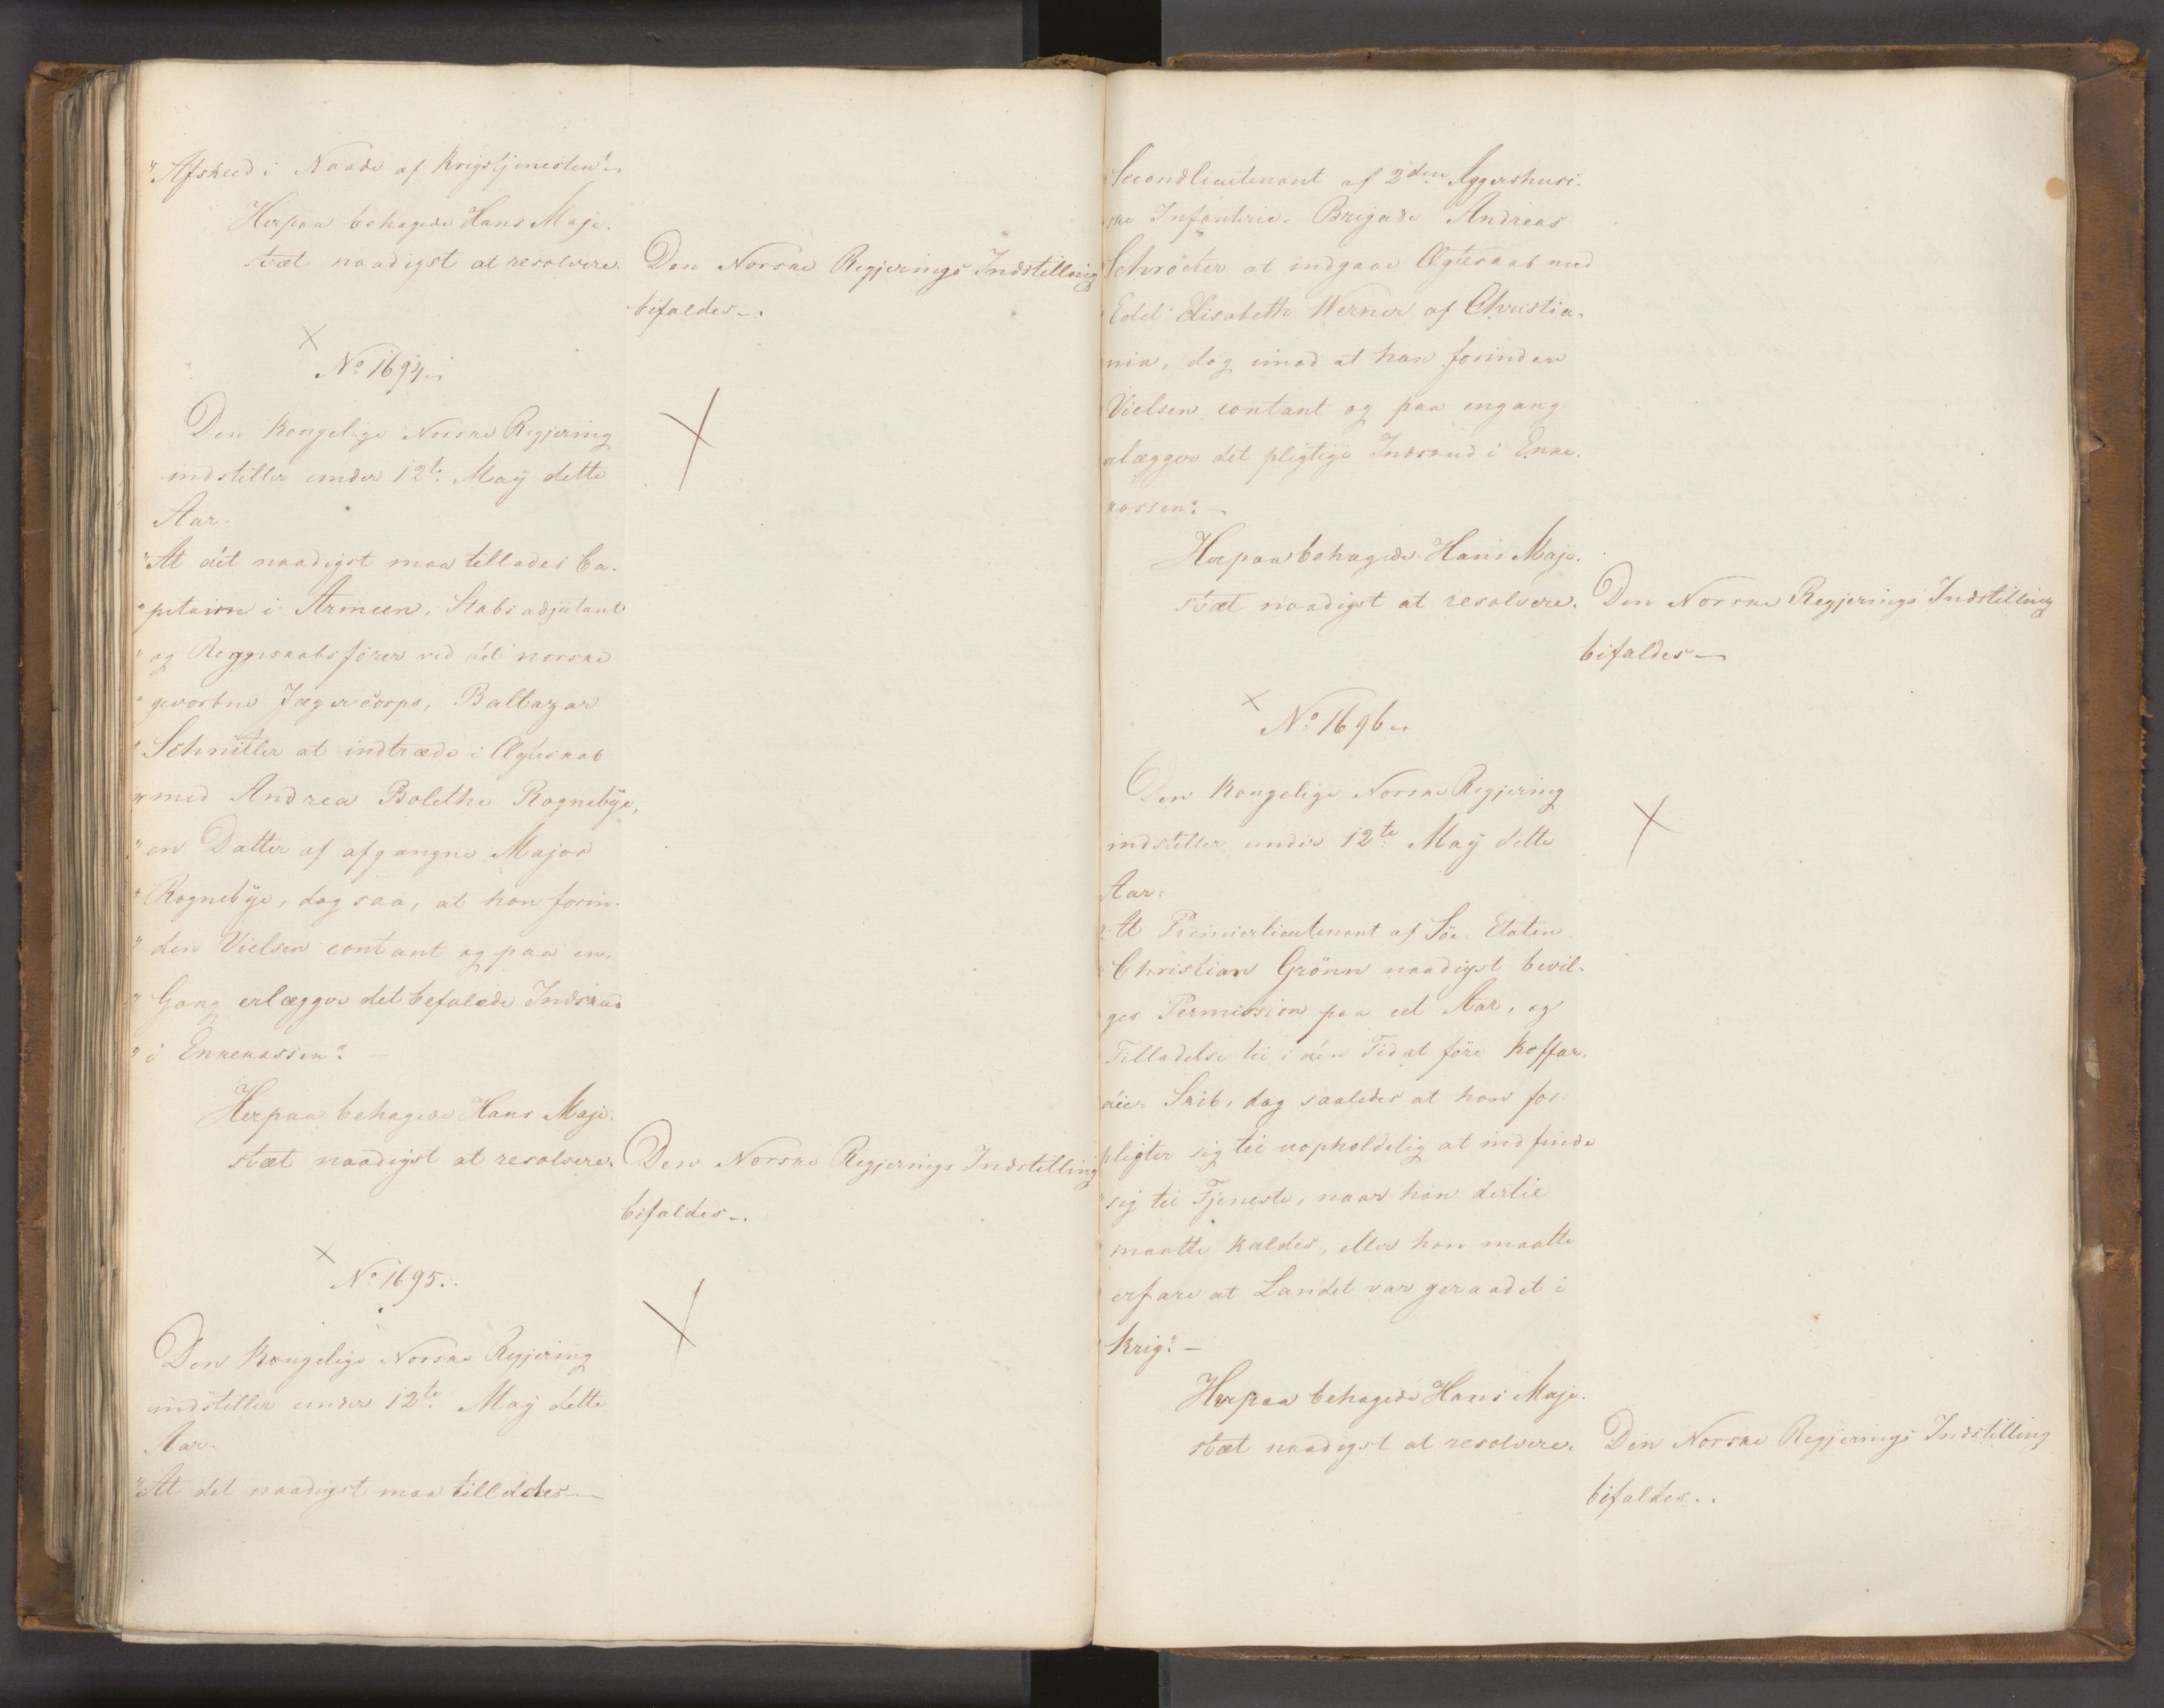 "Afskeed i Naade af Krigstjenesten".
Herpaa behagede Hans Maje-
stæt naadigst at resolvere. Den Norske Regjerings Indstilling
bifaldes.
No 1694.
Den Kongelige Norske Regjering
indstiller under 12te May dette
Aar.
"At det naadigst maa tillades Ca-
"pitain i Armeen, Stabsadjutant
"og Regnskabsfører ved det norske
"gevorbne Jægercorps, Baltazar
"Schnitler at indtræde i Ægteskab
"med Andrea Bolethe Rognebye,
"en Datter af afgangne Major
"Rognebye, dog saa, at han forin-
"den Vielsen contant og paa en-
"Gang erlægger det befalede Indskud
"i Enkekassen". —
Herpaa behagede Hans Maje-
stæt naadigst at resolvere. Den Norske Regjerings Indstilling
bifaldes.
No 1695.
Den Kongelige Norske Regjering
indstiller under 12te May dette
Aar.
"At det naadigst maa tillades
Secondlieutenant af 2den Aggershusi-
ske Infanterie-Brigade Andreas
Schröeter at indgaae Ægteskab med
Edel Elisabeth Werner af Christia-
nia, dog imod at han forinden
Vielsen contant og paa engang
erlægger det pligtige Indskud i Enke-
kassen". —
Herpaa behagede Hans Maje-
stæt naadigst at resolvere. Den Norske Regjerings Indstilling
bifaldes —
No 1696.
Den Kongelige Norske Regjering
indstiller under 12te May dette
Aar:
"At Premierlieutenant af Söe-Etaten
"Christian Grönn naadigst bevil-
ges Permission paa eet Aar, og
Tilladelse til i den Tid at före Koffar-
die-Skib, dog saaledes at han for-
pligter sig til uopholdelig at indfinde
"sig til Tjeneste, naar han dertil
maatte kaldes, eller han maatte
erfare at Landet var geraadet i
Krig". —
Herpaa behagede Hans Maje-
stæt naadigst at resolvere. Den Norske Regjerings Indstilling
bifaldes.